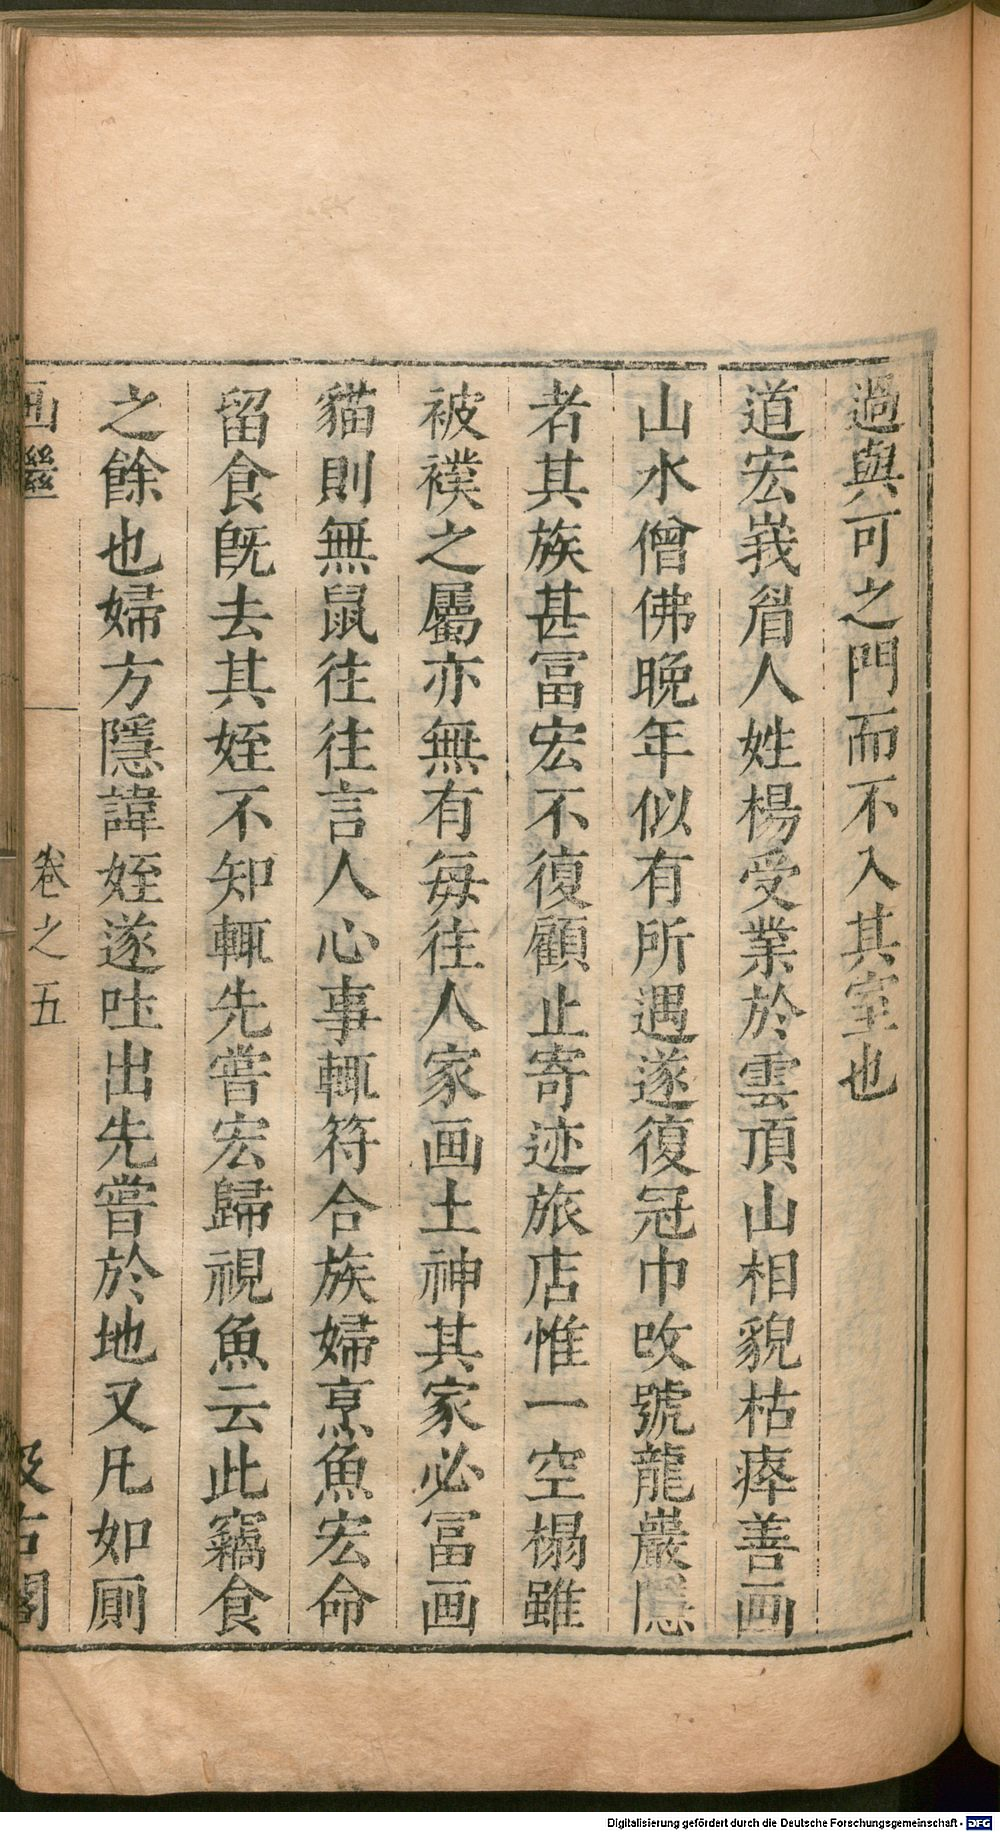 過與可之門而不入其室也
道宏峩眉人姓楊受業於雲頂山相貌枯瘁善画
山水僧佛晚年似有所遇遂復冠巾改號龍巖隱
者其族甚冨宏不復顧止寄迹旅店惟一空榻雖
被襆之屬亦無有每往人家画土神其家必冨画
貓則無鼠往往言人心事輒符合族婦烹魚宏命
留食旣去其姪不知輒先嘗宏歸視魚云此竊食
之餘也婦方隱諱姪遂吐出先嘗於地又凡如厠
画繼
卷之五
汲古閣
Digitalisierung gefördert durch die Deutsche Forschungsgemeinschaft - DFG